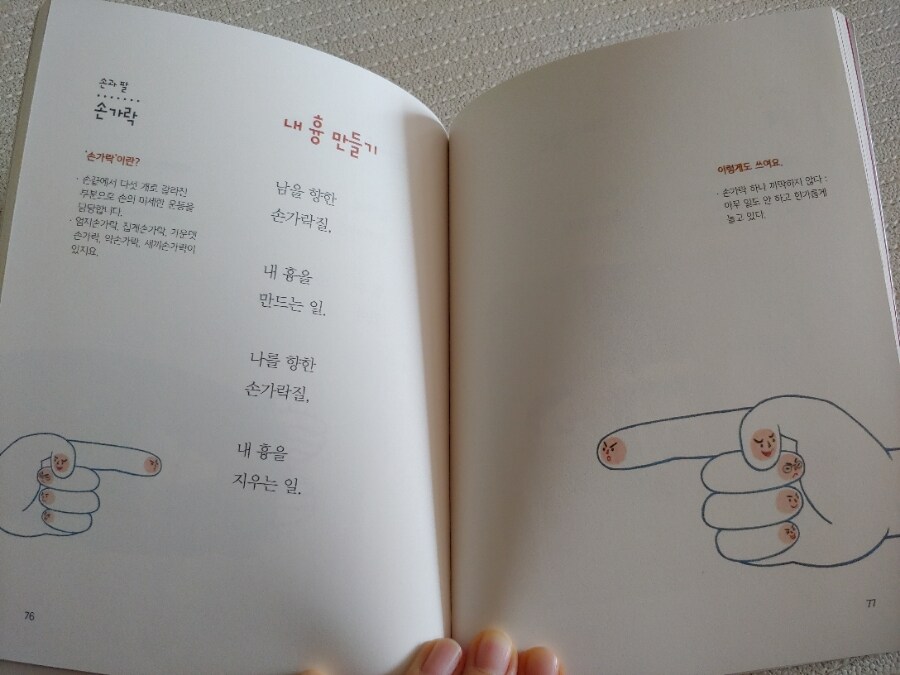 손과 팔
손가락
내 흉 만들기
'손가락'이란?
· 손끝에서 다섯 개로 갈라진
부분으로 손의 미세한 운동을
담당합니다.
· 엄지손가락, 집게손가락, 가운뎃
손가락, 약손가락, 새끼손가락이
있지요.
남을 향한
손가락질,
내 흉을
만드는 일.
나를 향한
손가락질,
내 흉을
지우는 일.
76
이렇게도 쓰여요.
· 손가락 하나 까딱하지 않다 :
아무 일도 안 하고 한가롭게
놀고 있다.
77